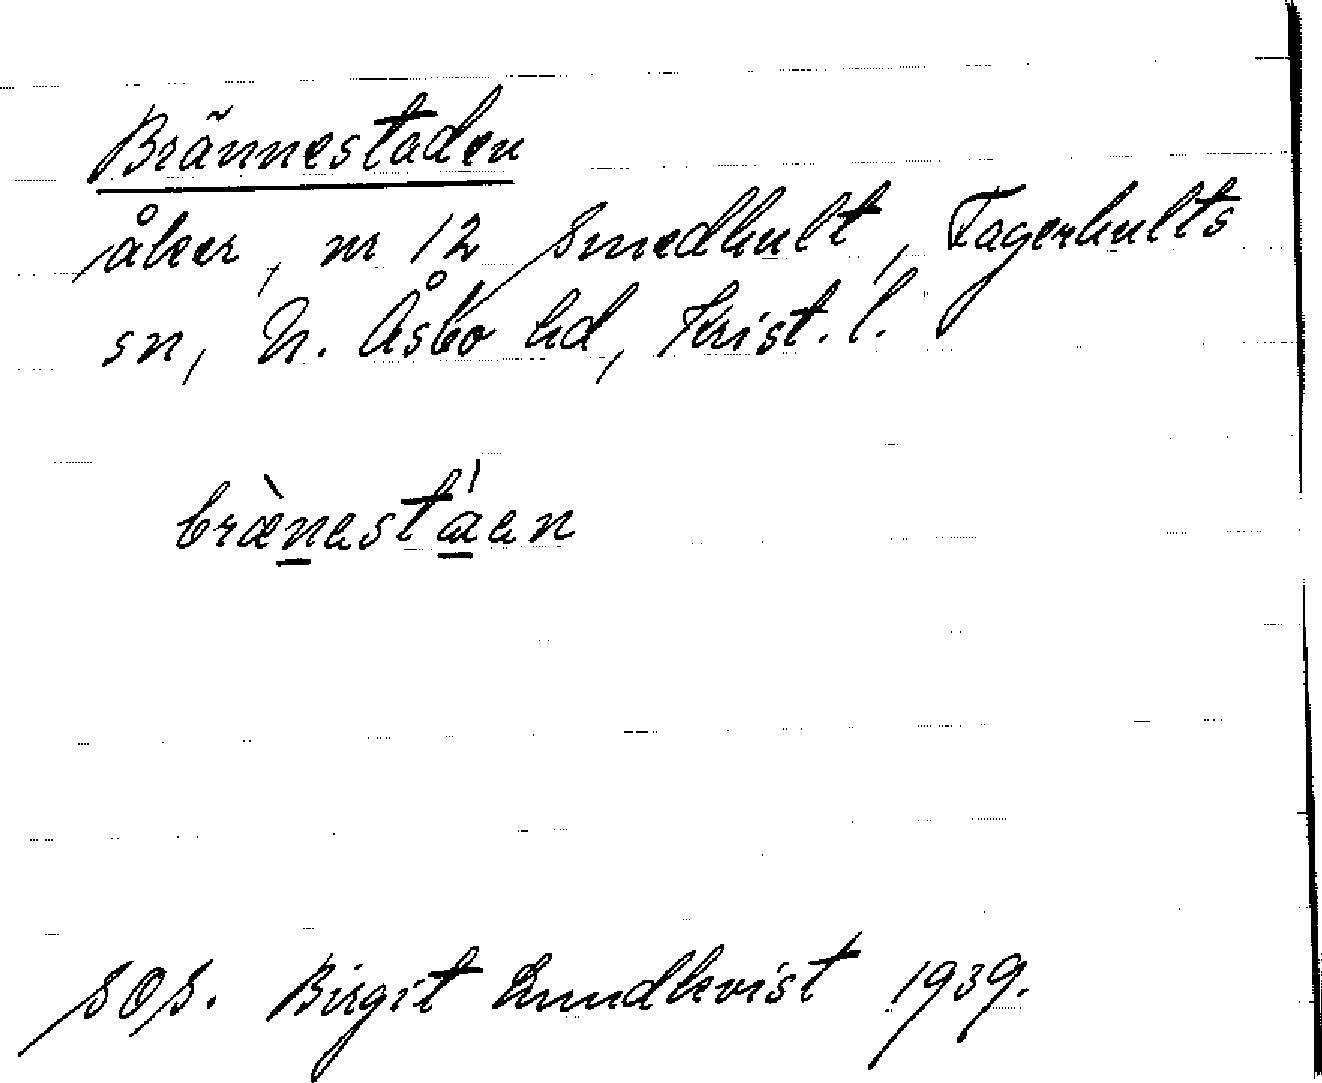 Brännestaden
åker, nr 12 Smedhult, Fagerhults
sn, N. Åsbo hd, Krist. l.
brænestáen
SOS. Birgit Lundkvist 1939.